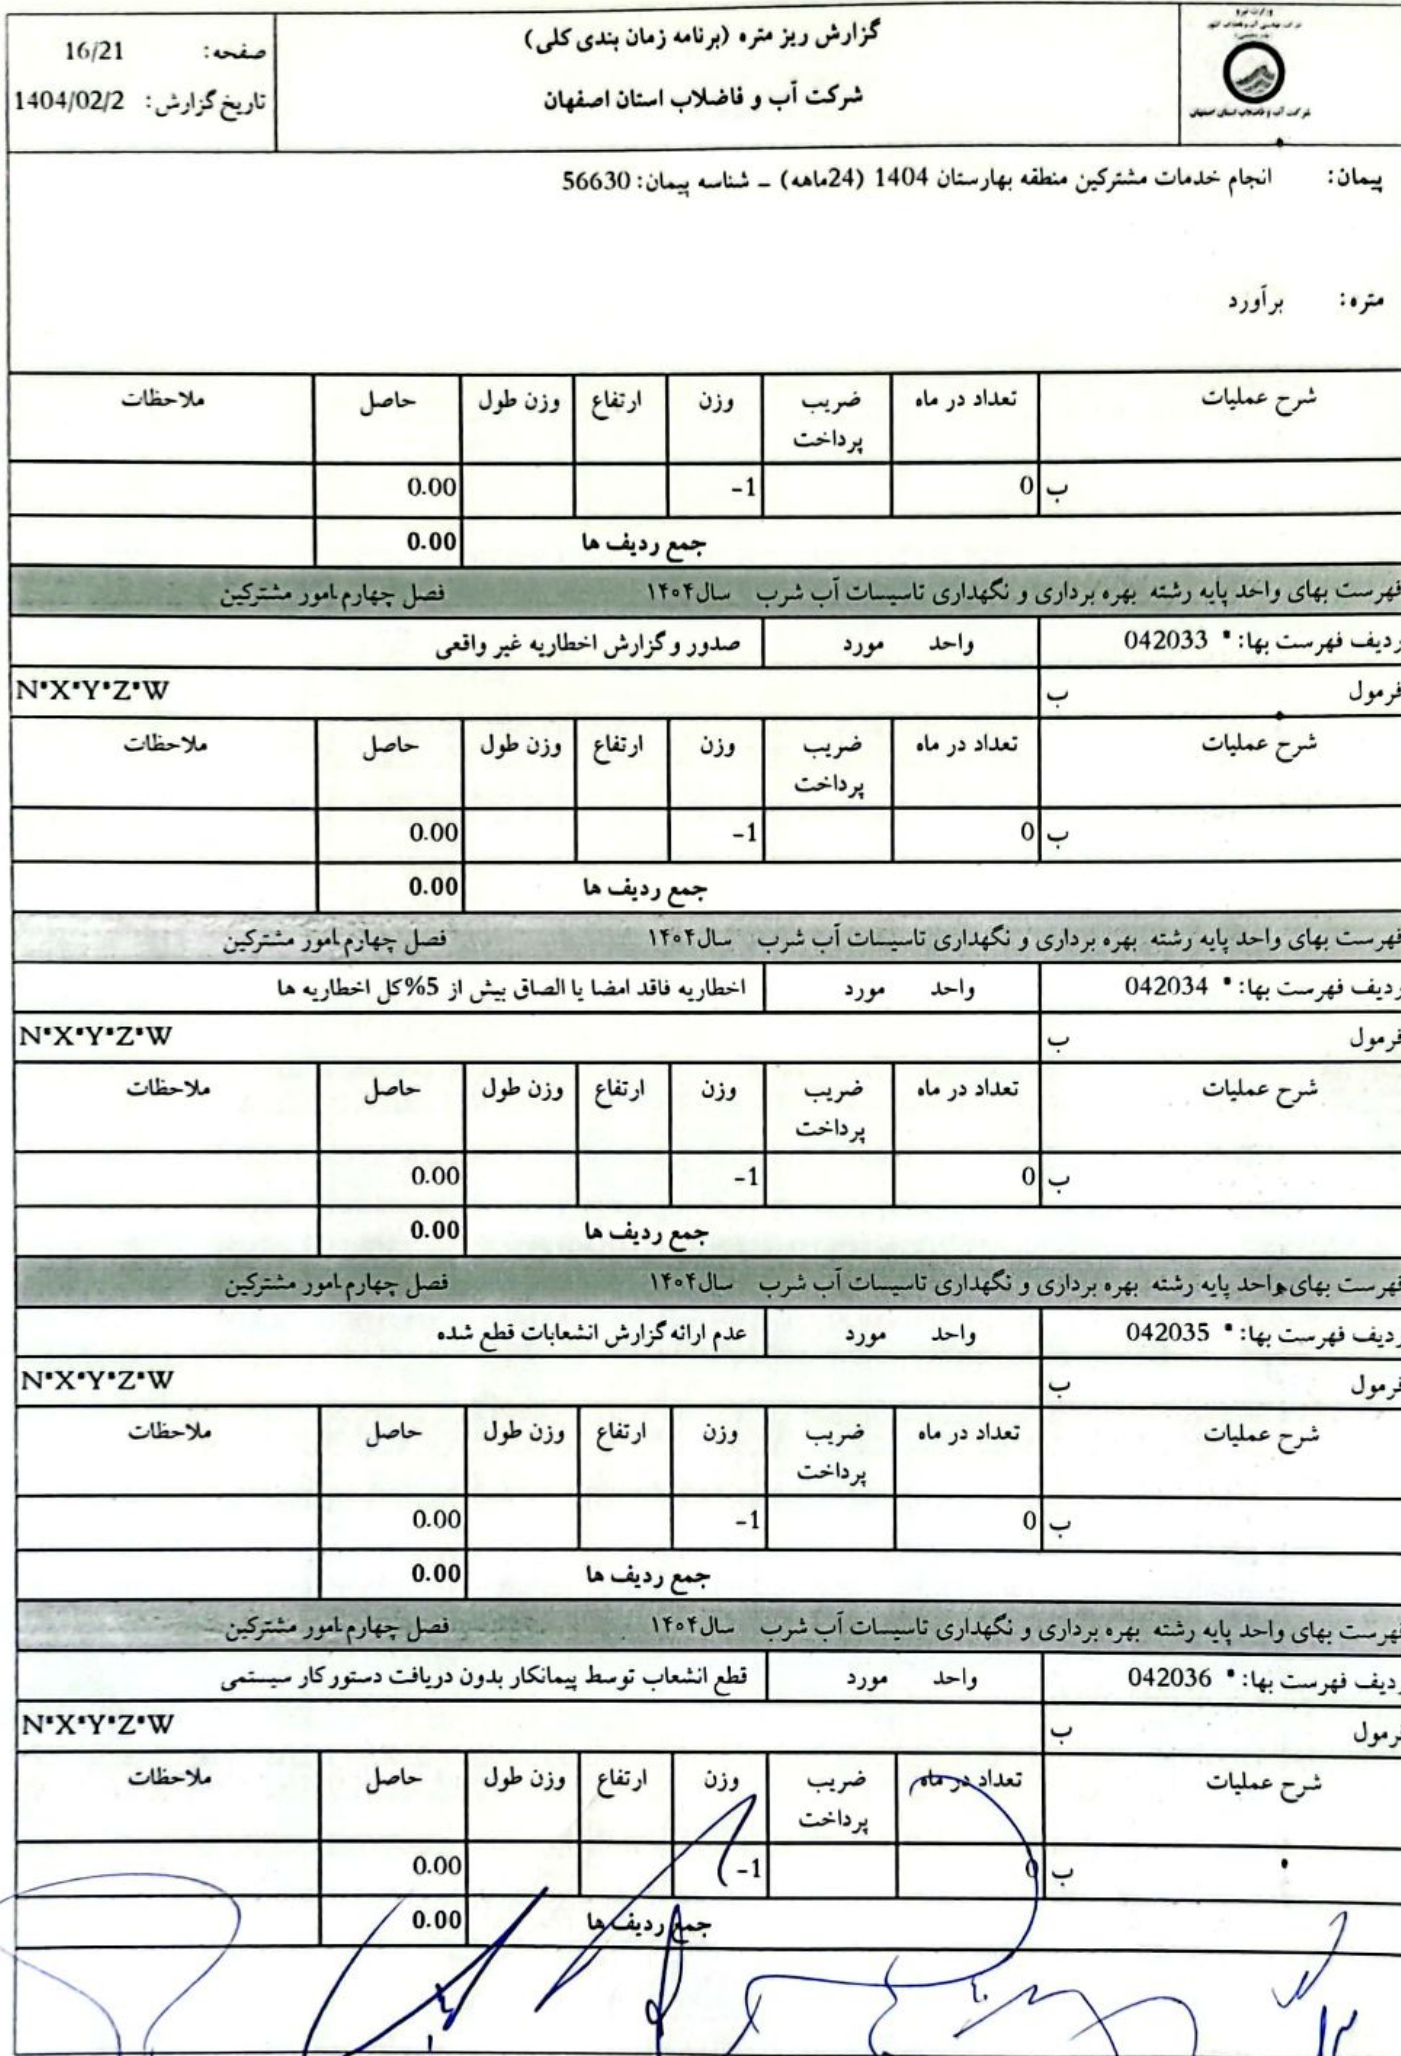 وزارت نیرو
شرکت آب و فاضلاب استان اصفهان
گزارش ریز متره (برنامه زمان بندی کلی)
شرکت آب و فاضلاب استان اصفهان
صفحه: 16/21
تاریخ گزارش: 1404/02/2
پیمان: انجام خدمات مشترکین منطقه بهارستان 1404 (24ماهه) - شناسه پیمان: 56630
متره: برآورد
شرح عملیات تعداد در ماه ضریب پرداخت وزن ارتفاع وزن طول حاصل ملاحظات
ب 0 -1 0.00
جمع ردیف ها 0.00
فهرست بهای واحد پایه رشته بهره برداری و نگهداری تاسیسات آب شرب سال۱۴۰۴ فصل چهارم.امور مشترکین
ردیف فهرست بها: * 042033 واحد مورد صدور و گزارش اخطاریه غیر واقعی
فرمول ب N*X*Y*Z*W
شرح عملیات تعداد در ماه ضریب پرداخت وزن ارتفاع وزن طول حاصل ملاحظات
ب 0 -1 0.00
جمع ردیف ها 0.00
فهرست بهای واحد پایه رشته بهره برداری و نگهداری تاسیسات آب شرب سال۱۴۰۴ فصل چهارم.امور مشترکین
ردیف فهرست بها: * 042034 واحد مورد اخطاریه فاقد امضا یا الصاق بیش از 5%کل اخطاریه ها
فرمول ب N*X*Y*Z*W
شرح عملیات تعداد در ماه ضریب پرداخت وزن ارتفاع وزن طول حاصل ملاحظات
ب 0 -1 0.00
جمع ردیف ها 0.00
فهرست بهای واحد پایه رشته بهره برداری و نگهداری تاسیسات آب شرب سال۱۴۰۴ فصل چهارم.امور مشترکین
ردیف فهرست بها: * 042035 واحد مورد عدم ارائه گزارش انشعابات قطع شده
فرمول ب N*X*Y*Z*W
شرح عملیات تعداد در ماه ضریب پرداخت وزن ارتفاع وزن طول حاصل ملاحظات
ب 0 -1 0.00
جمع ردیف ها 0.00
فهرست بهای واحد پایه رشته بهره برداری و نگهداری تاسیسات آب شرب سال۱۴۰۴ فصل چهارم.امور مشترکین
ردیف فهرست بها: * 042036 واحد مورد قطع انشعاب توسط پیمانکار بدون دریافت دستور کار سیستمی
فرمول ب N*X*Y*Z*W
شرح عملیات تعداد در ماه ضریب پرداخت وزن ارتفاع وزن طول حاصل ملاحظات
ب 0 -1 0.00
جمع ردیف ها 0.00